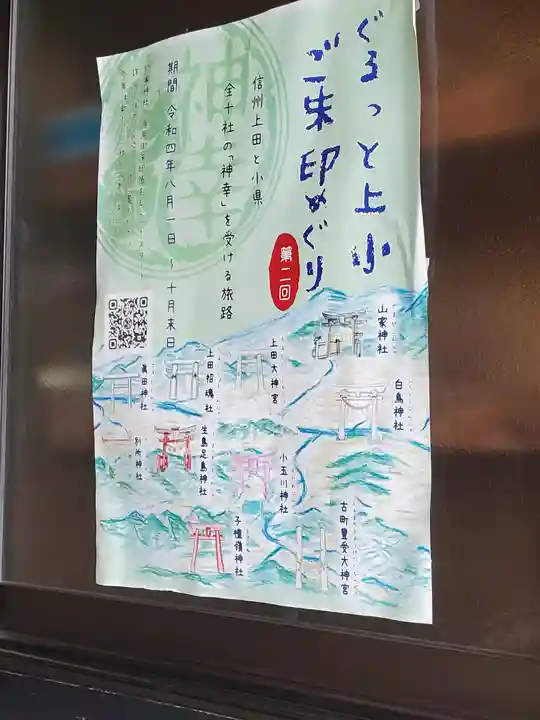 ぐるっと上小
ご朱印めぐり
第二回
信州上田と小県
全十社の「神幸」を受ける旅路
期間 令和四年八月一日 ~ 十月末日
神幸
山家神社
白鳥神社
上田大神宮
上田招魂社
眞田神社
生島足島神社
別所神社
小玉川神社
子檀嶺神社
古町豊受大神宮